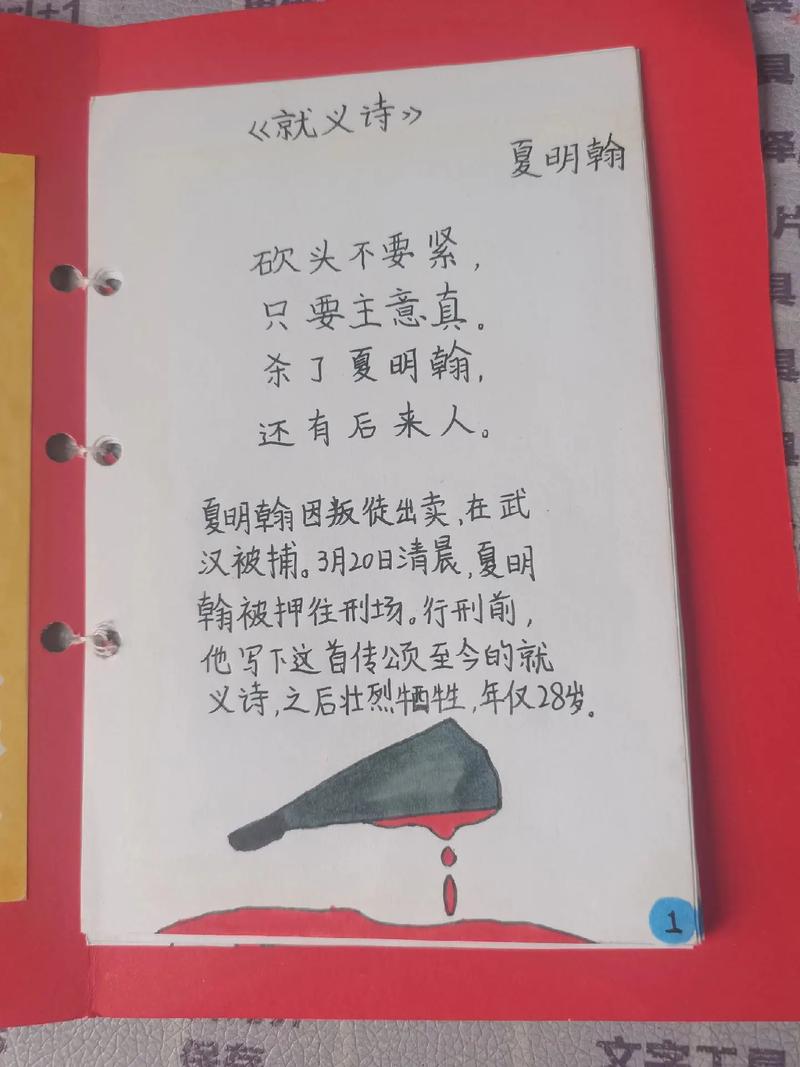 《就义诗》
夏明翰
砍头不要紧，
只要主意真。
杀了夏明翰，
还有后来人。
夏明翰因叛徒出卖，在武
汉被捕。3月20日清晨，夏明
翰被押往刑场。行刑前，
他写下这首传颂至今的就
义诗，之后壮烈牺牲，年仅28岁。
1
保存
文字工具